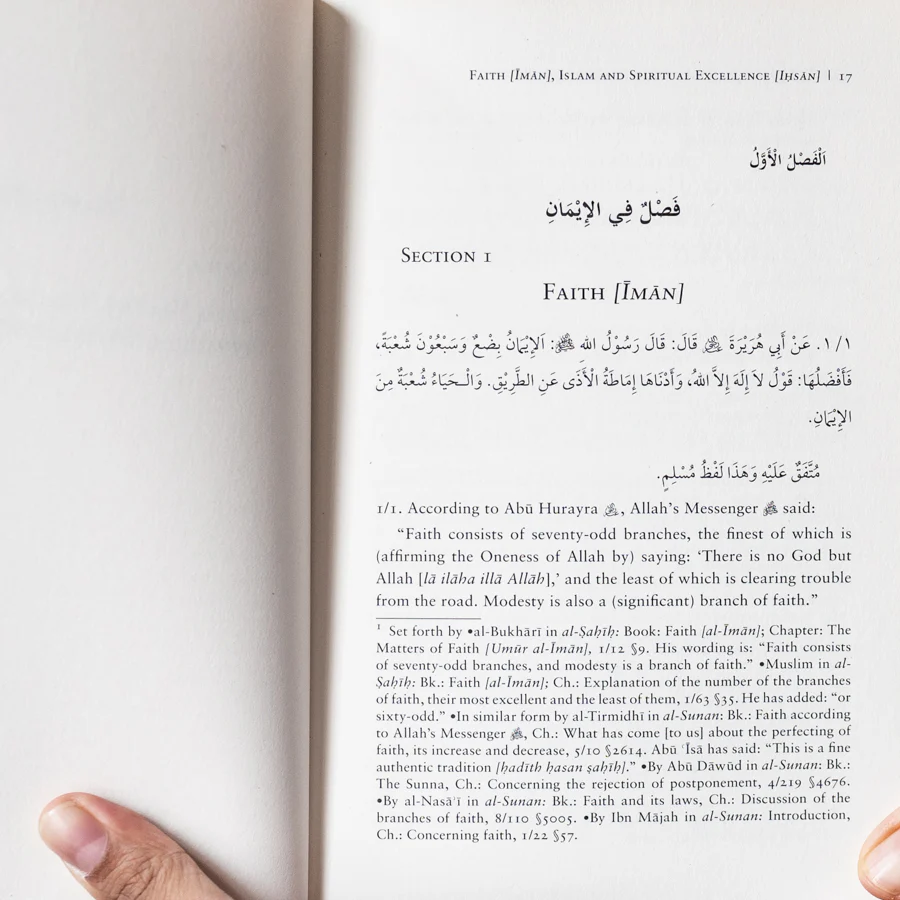 FAITH [ĪMĀN], ISLAM AND SPIRITUAL EXCELLENCE [IḤSĀN] | 17
اَلْفَصْلُ الْأَوَّلُ
فَصْلٌ فِي الإِيْمَانِ
SECTION 1
FAITH [ĪMĀN]
١/١. عَنْ أَبِي هُرَيْرَةَ ؓ قَالَ: قَالَ رَسُوْلُ اللهِ ﷺ: اَلإِيْمَانُ بِضْعٌ وَسَبْعُوْنَ شُعْبَةً،
فَأَفْضَلُهَا: قَوْلُ لاَ إِلَهَ إِلاَّ اللهُ، وَأَدْنَاهَا إِمَاطَةُ الْأَذَى عَنِ الطَّرِيْقِ. وَالْـحَيَاءُ شُعْبَةٌ مِنَ
الإِيْمَانِ.
مُتَّفَقٌ عَلَيْهِ وَهَذَا لَفْظُ مُسْلِمٍ.
1/1. According to Abū Hurayra ؓ, Allah's Messenger ﷺ said:
“Faith consists of seventy-odd branches, the finest of which is
(affirming the Oneness of Allah by) saying: ‘There is no God but
Allah [lā ilāha illā Allāh],’ and the least of which is clearing trouble
from the road. Modesty is also a (significant) branch of faith.”
1 Set forth by •al-Bukhārī in al-Ṣaḥīḥ: Book: Faith [al-Īmān]; Chapter: The
Matters of Faith [Umūr al-īmān], 1/12 §9. His wording is: “Faith consists
of seventy-odd branches, and modesty is a branch of faith.” •Muslim in al-
Ṣaḥīḥ: Bk.: Faith [al-Īmān]; Ch.: Explanation of the number of the branches
of faith, their most excellent and the least of them, 1/63 §35. He has added: “or
sixty-odd.” •In similar form by al-Tirmidhī in al-Sunan: Bk.: Faith according
to Allah's Messenger ﷺ, Ch.: What has come [to us] about the perfecting of
faith, its increase and decrease, 5/10 §2614. Abū ʿĪsā has said: “This is a fine
authentic tradition [ḥadīth ḥasan ṣaḥīḥ].” •By Abū Dāwūd in al-Sunan: Bk.:
The Sunna, Ch.: Concerning the rejection of postponement, 4/219 §4676.
•By al-Nasāʾī in al-Sunan: Bk.: Faith and its laws, Ch.: Discussion of the
branches of faith, 8/110 §5005. •By Ibn Mājah in al-Sunan: Introduction,
Ch.: Concerning faith, 1/22 §57.